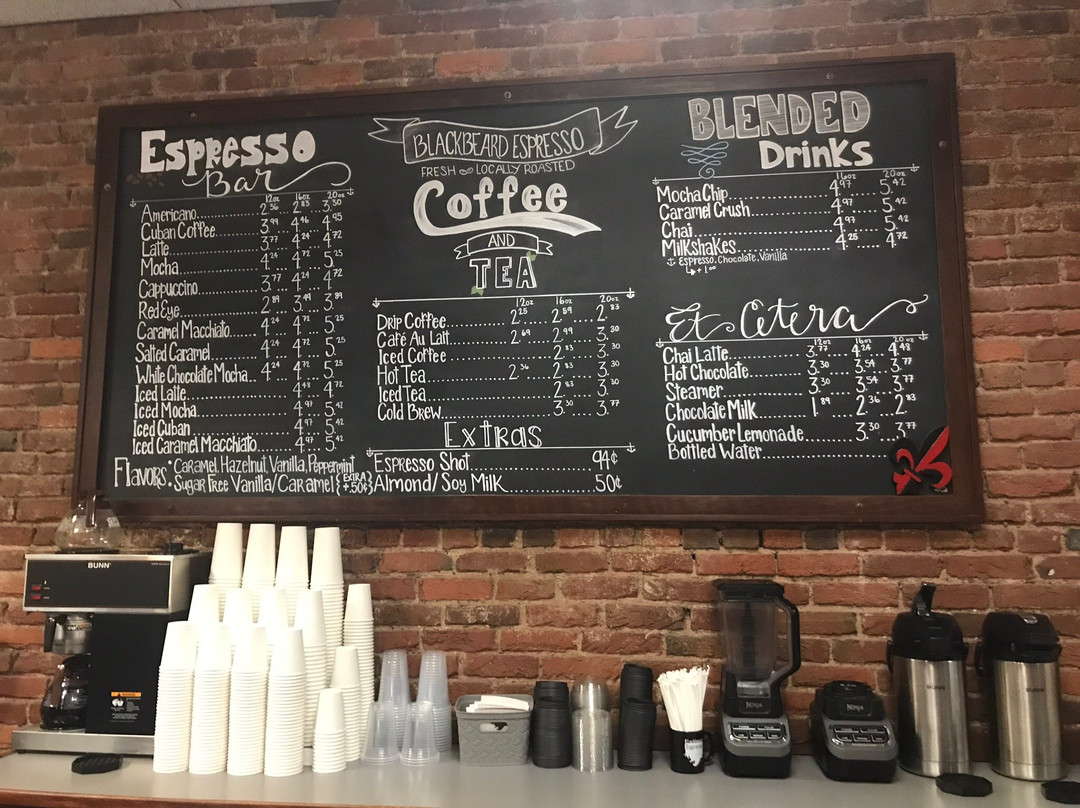 Espresso
Bar
12oz 16oz 20oz
Americano 2.36 2.83 3.30
Cuban Coffee 3.99 4.46 4.95
Latte 3.77 4.24 4.72
Mocha 4.24 4.72 5.25
Cappuccino 3.77 4.24 4.72
Red Eye 2.89 3.49 3.89
Caramel Macchiato 4.24 4.72 5.25
Salted Caramel 4.24 4.72 5.25
White Chocolate Mocha 4.24 4.72 5.25
Iced Latte 4.48 4.72
Iced Mocha 4.97 5.42
Iced Cuban 4.97 5.42
Iced Caramel Macchiato 4.97 5.42
Flavors: Caramel, Hazelnut, Vanilla, Peppermint
Sugar Free Vanilla/Caramel {Extra +.50¢}
Blackbeard Espresso
Fresh Locally Roasted
Coffee
and
Tea
12oz 16oz 20oz
Drip Coffee 2.25 2.59 2.83
Café Au Lait 2.69 2.99 3.30
Iced Coffee 2.83 3.30
Hot Tea 2.36 2.83 3.30
Iced Tea 2.83 3.30
Cold Brew 3.30 3.77
Extras
Espresso Shot 94¢
Almond/Soy Milk 50¢
Blended
Drinks
16oz 20oz
Mocha Chip 4.97 5.42
Caramel Crush 4.97 5.42
Chai 4.97 5.42
Milkshakes 4.25 4.72
Espresso, Chocolate, Vanilla
+1.00
Et Cetera
12oz 16oz 20oz
Chai Latte 3.77 4.24 4.48
Hot Chocolate 3.30 3.54 3.77
Steamer 3.30 3.54 3.77
Chocolate Milk 1.89 2.36 2.83
Cucumber Lemonade 3.30 3.77
Bottled Water
BUNN
NINJA
NINJA
BUNN
BUNN